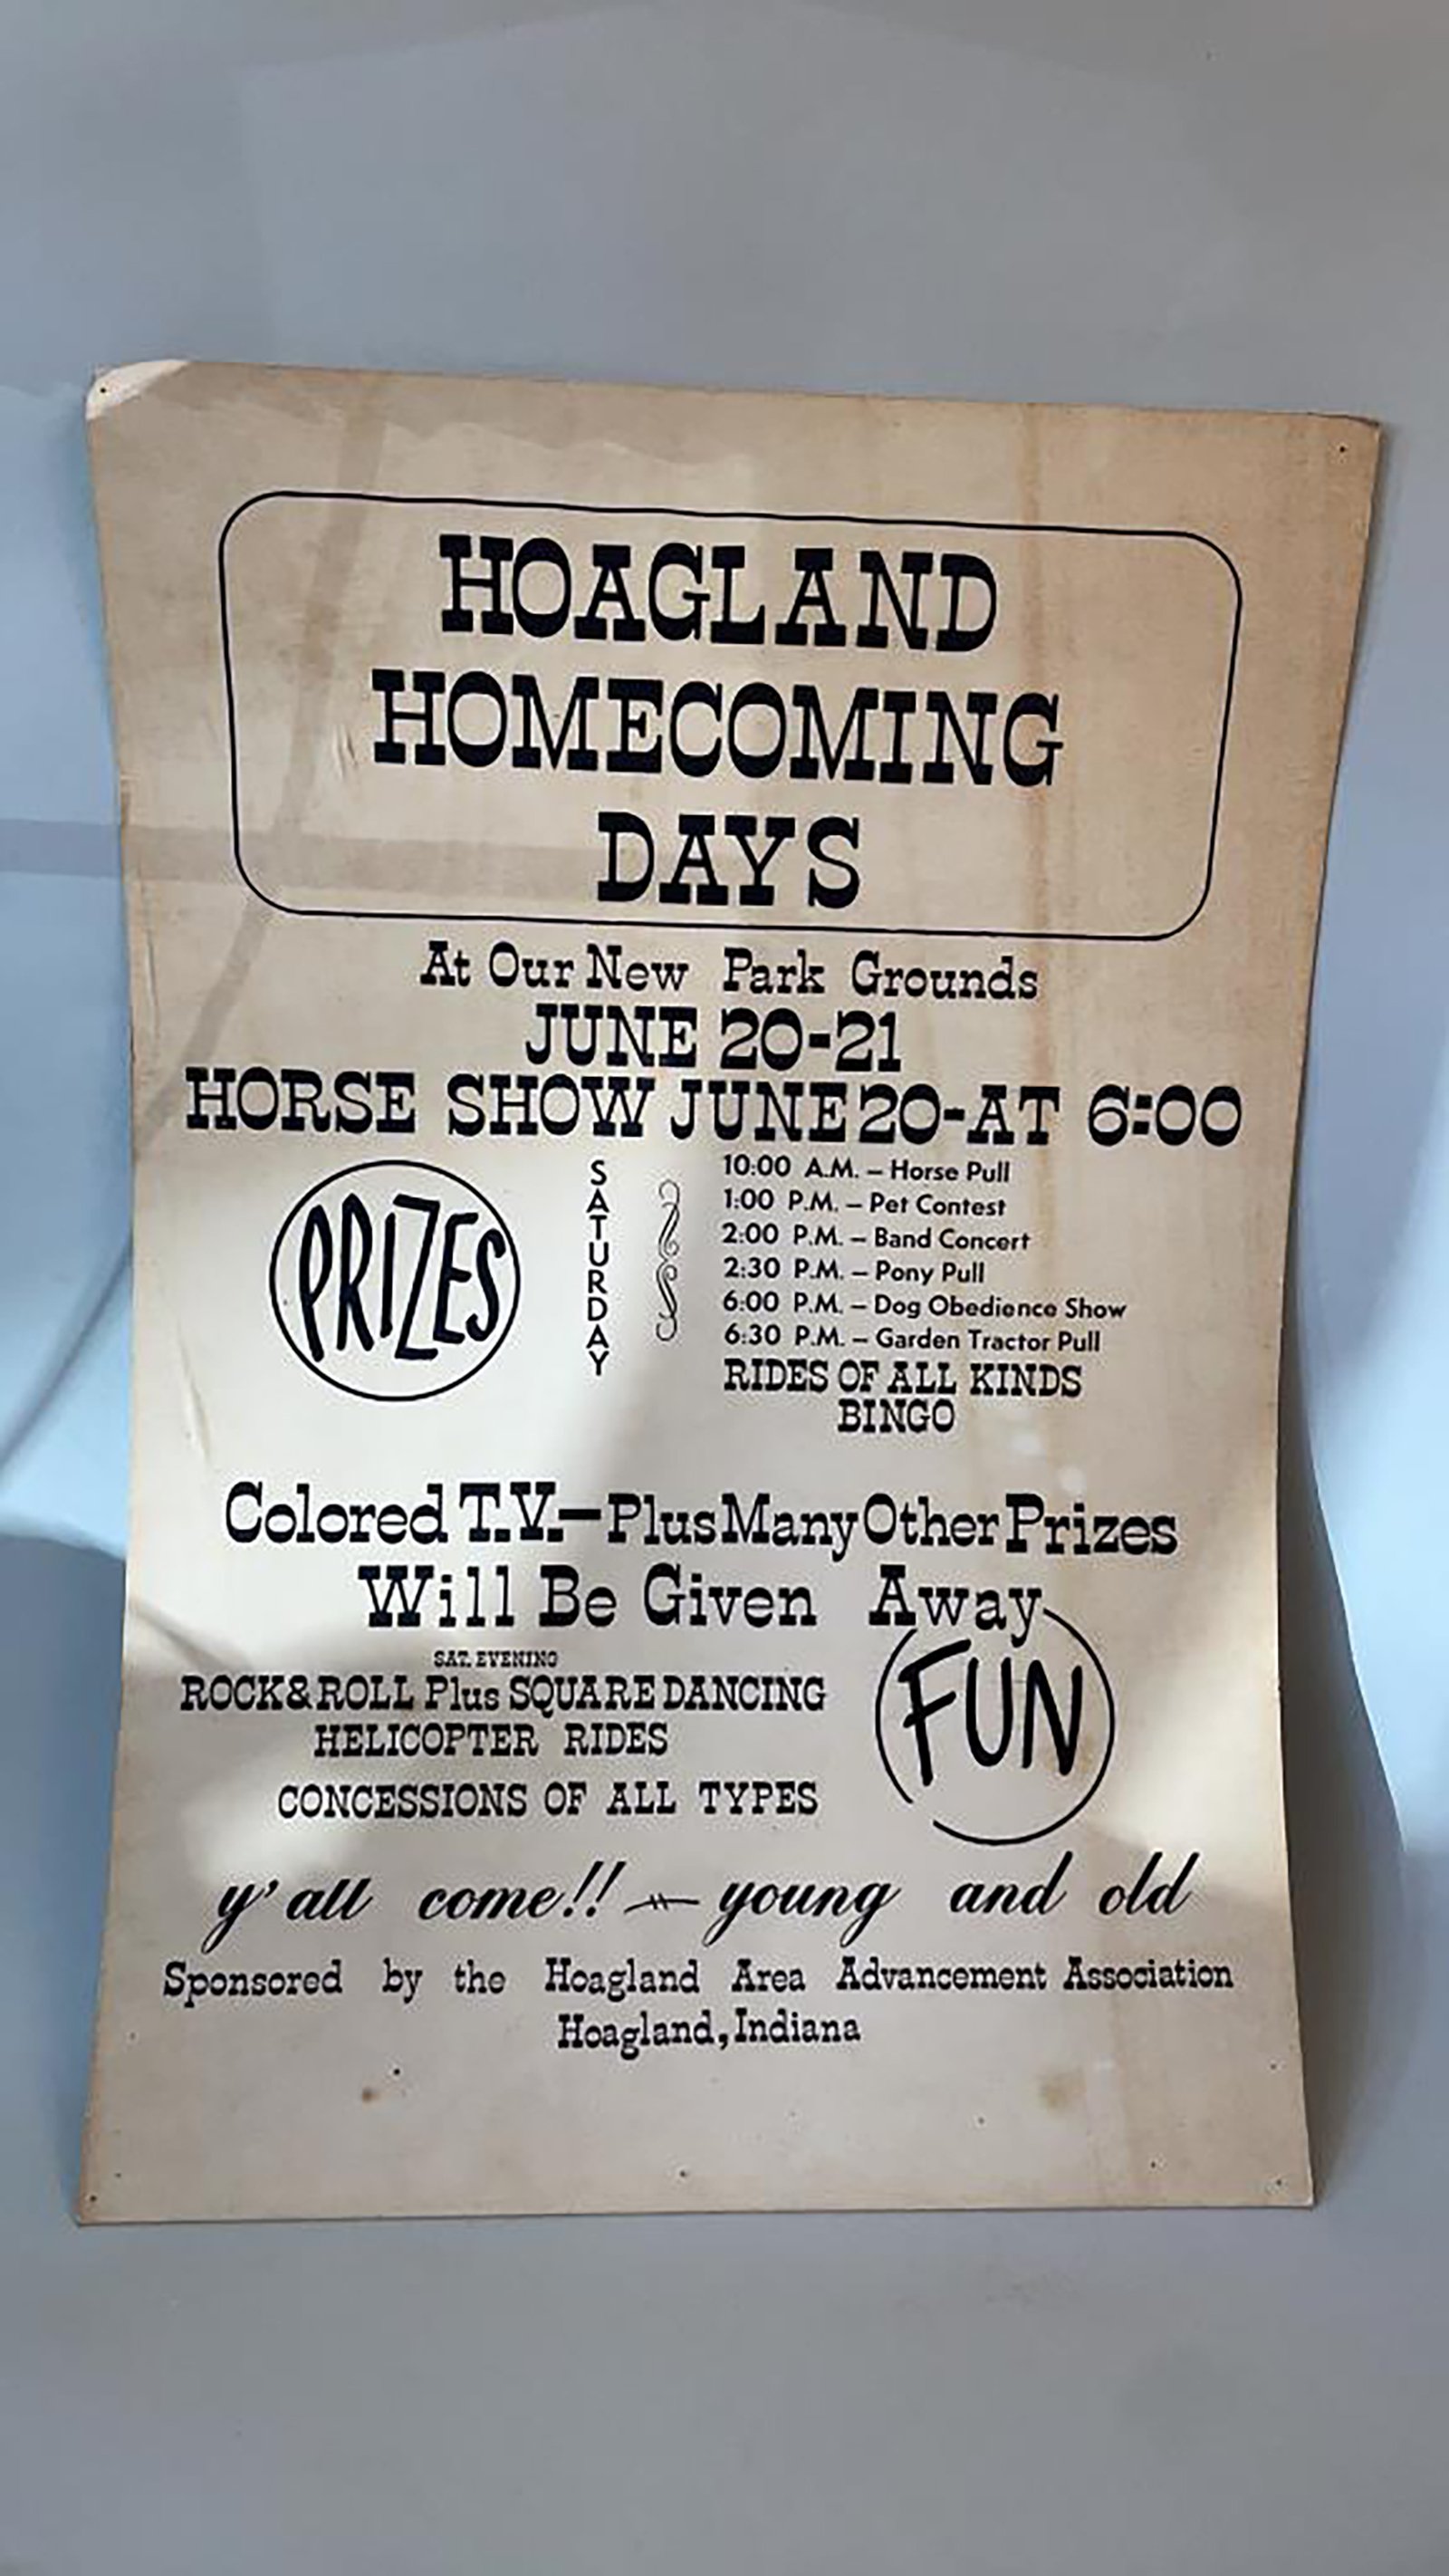 HOAGLAND
HOMECOMING
DAYS
At Our New Park Grounds
JUNE 20-21
HORSE SHOW JUNE 20-AT 6:00
PRIZES
SATURDAY
10:00 A.M. – Horse Pull
1:00 P.M. – Pet Contest
2:00 P.M. – Band Concert
2:30 P.M. – Pony Pull
6:00 P.M. – Dog Obedience Show
6:30 P.M. – Garden Tractor Pull
RIDES OF ALL KINDS
BINGO
Colored T.V.—Plus Many Other Prizes
Will Be Given Away
SAT. EVENING
ROCK & ROLL Plus SQUARE DANCING
HELICOPTER RIDES
CONCESSIONS OF ALL TYPES
FUN
y'all come!! — young and old
Sponsored by the Hoagland Area Advancement Association
Hoagland, Indiana